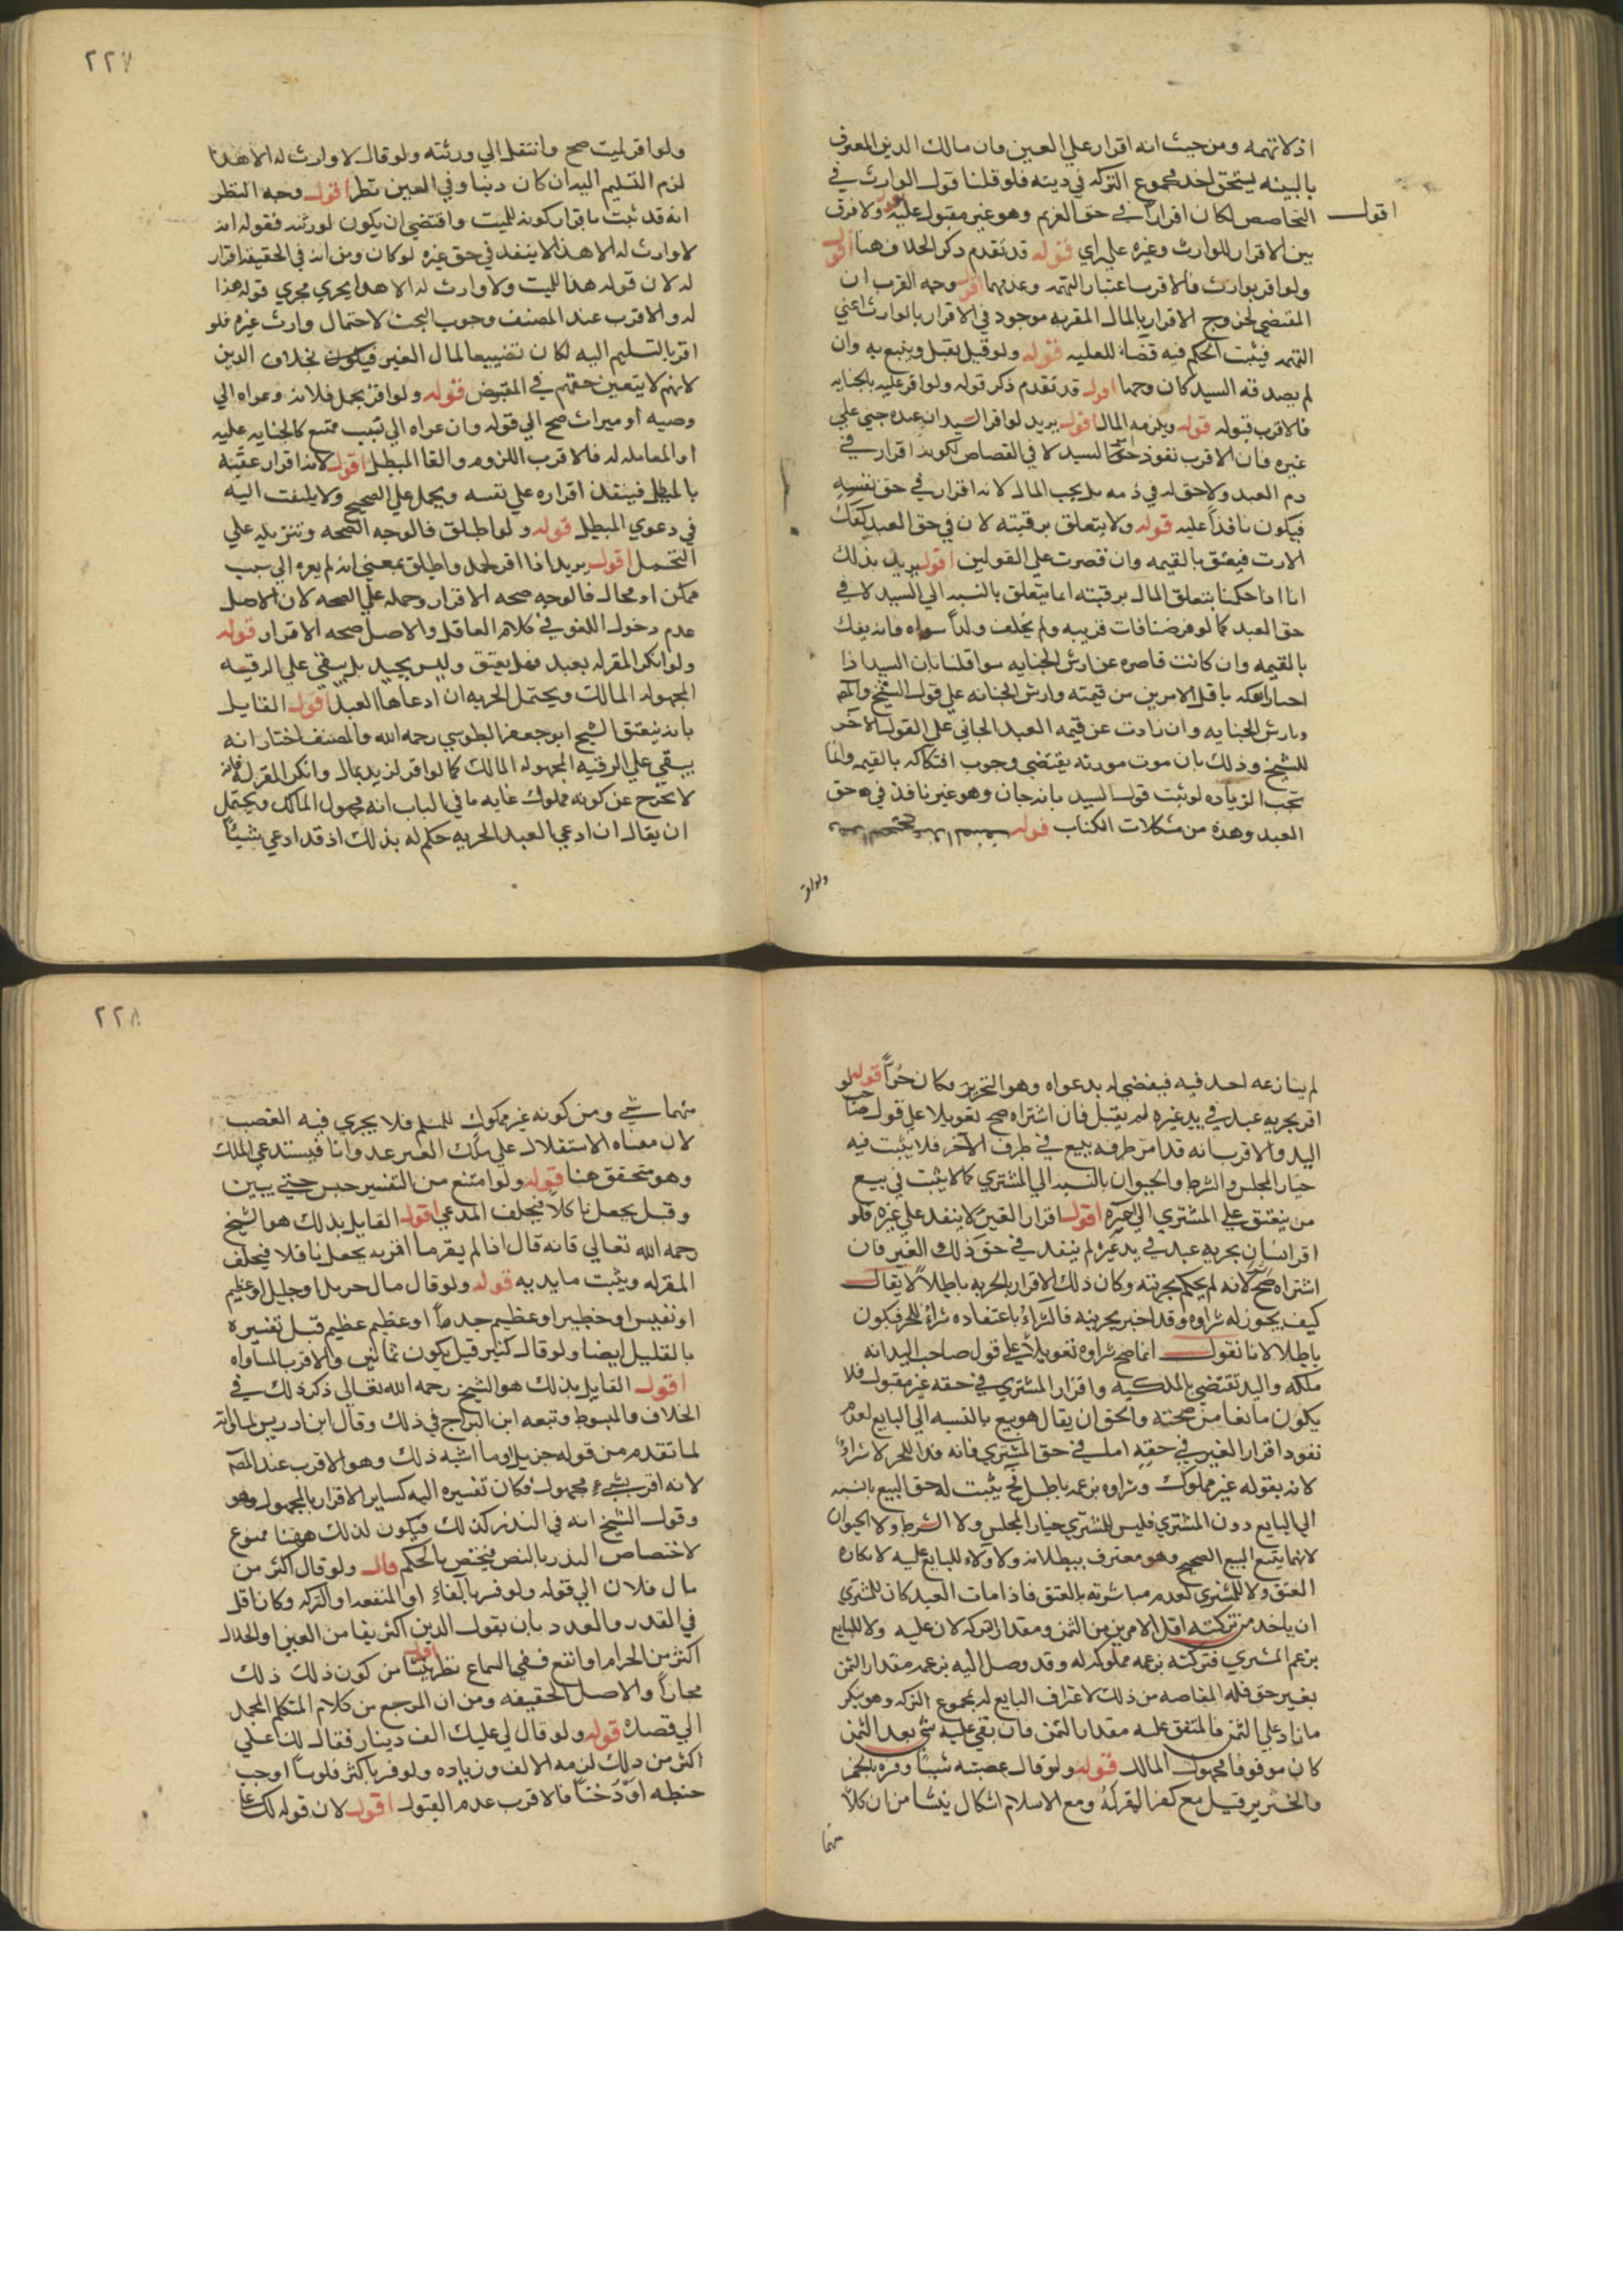 اذ لا تهمه ومن حيث انه اقرار علي العين فان مالك الدين المعترف
بالبينه يستحق اخد مجموع التركه في دينه فلو قلنا قول الوارث في
اقول
التخاصص لكان اقرارا في حق الغريم وهو غير مقبول عليه ولا فرق
بين الاقرار للوارث وغيره علي راي قوله قد تقدم ذكر الخلاف هنا اقول
ولو اقر بوارث فالاقرب اعتبار التهمه وعدمها اقول وجه القرب ان
المقتضي لخروج الاقرار بالمال المقر به موجود في الاقرار بالوارث اعني
التهمه فيثبت الحكم فيه قضاء للعليه قوله ولو قيل يقبل ويتبع به وان
لم يصدقه السيد كان وجها اقول قد تقدم ذكر قوله ولو اقر عليه بالجنايه
فالاقرب قبوله قوله ويلزمه المال اقول يريد لو اقر السيد ان عبده جني علي
غيره فان الاقرب نفوذ حق السيد لا في القصاص لكونه اقرار في
دم العبد ولا حق له في ذمه بل يجب المال لانه اقرار في حق نفسه
فيكون نافذا عليه قوله ولا يتعلق برقبته لان في حق العبد كفك
الارث فيعتق بالقيمه وان قصرت علي القولين اقول يريد بذلك
انا اذا حكمنا بتعلق المال برقبته انما يتعلق بالنسبه الي السيد لا في
حق العبد كما لو فرضنا فات قريبه ولم يخلف ولدا سواه فانه يفك
بالقيمه وان كانت قاصره عن ارش الجنايه سوا قلنا بان السيد اذا
احبار افكه باقل الامرين من قيمته وارش الجنايه علي قول الشيخ والمصـ
وبارش الجنايه وان زادت عن قيمه العبد الجاني علي القول الآخر
للشيخ وذلك بان موت مورثه يقتضي وجوب افتكاكه بالقيمه وانما
تجب الزياده لو ثبت قول السيد بانه جان وهو غير نافذ في حق
العبد وهذه من مشكلات الكتاب قوله
ولو اقر
٢٢٧
ولو اقر لميت صح وانتقل الي ورثته ولو قال لا وارث له الا هذا
لزم التسليم اليه ان كان دينا وفي العين نظر اقول وجه النظر
انه قد ثبت باقراره كونه للميت واقتضي ان يكون لورثته فقوله انه
لا وارث له الا هذا لا ينفد في حق غيره لو كان ومن انه في الحقيقه اقرار
له لان قوله هذا للميت ولا وارث له الا هذا يجري مجري قوله هذا
له والاقرب عند المصنف وجوب البحث لاحتمال وارث غيره فلو
اقر بالتسليم اليه لكان تضييعا لمال الغير فيكون بخلاف الدين
لانهم لا يتعين حقهم في المقبوض قوله ولو اقر بحمل فلانه وعزاه الي
وصيه او ميراث صح الي قوله وان عزاه الي سبب ممتنع كالجنايه عليه
او المعامله له فالاقرب اللزوم والغا المبطل اقول لانه اقرار عقبه
بالمبطل فينفذ اقراره علي نفسه ويحمل علي الصحيح ولا يلتفت اليه
في دعوي المبطل قوله ولو اطلق فالوجه الصحه وتنزيله علي
المحتمل اقول يريد اذا اقر لحمل واطلق بمعني انه لم يعزه الي سبب
ممكن او محال فالوجه صحه الاقرار وحمله علي الصحه لان الاصل
عدم دخول اللغو في كلام العاقل والاصل صحه الاقرار قوله
ولو انكر المقر له بعبد فهل يعتق وليس بجيد بل يبقي علي الرقيه
المجهوله المالك ويحتمل الحريه ان ادعاها العبد اقول القايل
بانه ينعتق الشيخ ابو جعفر الطوسي رحمه الله والمصنف اختار انه
يبقي علي الرقيه المجهوله المالك كما لو اقر لزيد بمال وانكر المقر له فانه
لا يخرج عن كونه مملوك غايه ما في الباب انه مجهول المالك ويحتمل
ان يقال ان ادعي العبد الحريه حكم له بذلك اذ قد ادعي شيئا
لم ينازعه احد فيه فيقضي له بدعواه وهو التحرير فكان حرا قوله لو
اقر بحريه عبد في يد غيره لم يقبل فان اشتراه صح تعويلا علي قول صاحب
اليد والاقرب انه فدا من طرفه بيع في طرف الآخر فلا يثبت فيه
خيار المجلس والشرط والحيوان بالنسبه الي المشتري كما لا يثبت في بيع
من ينعتق علي المشتري الي آخره اقول اقرار الغير لا ينفد علي غيره فلو
اقر انسان بحريه عبد في يد غيره لم ينفد في حق ذلك الغير فان
اشتراه صح لانه لم يحكم بحريته وكان ذلك الاقرار بالحريه باطلا لا يقال
كيف يجوز له شراوه وقد اخبر بحريته فالشراء باعتقاده شراء للحر فيكون
باطلا لانا نقول انما صح شراوه تعويلا علي قول صاحب اليد انه
ملكه واليد تقتضي الملكيه واقرار المشتري في حقه غير مقبول فلا
يكون مانعا من صحته والحق ان يقال هو بيع بالنسبه الي البايع لعدم
نفود اقرار الغير في حقه اما في حق المشتري فانه فدا للحر لا شراء
لانه بقوله غير مملوك وشراوه بزعمه باطل فح يثبت له حق البيع بالنسبه
الي البايع دون المشتري فليس للمشتري خيار المجلس ولا الشرط ولا الحيوان
لانها يتبع البيع الصحيح وهو معترف ببطلانه ولا ولاء للبايع عليه لانكاره
العتق ولا للمشتري لعدم مباشرته بالعتق فاذا مات العبد كان للمشتري
ان ياخد من تركته اقل الامرين من الثمن ومقدار التركه لان عليه ولا للبايع
بزعم المشتري فتركته بزعمه مملوكه له وقد وصل اليه بزعمه مقدار الثمن
بغير حق فله المقاصه من ذلك لاعتراف البايع له بمجموع التركه وهو ينكر
ما زاد علي الثمن فالمتفق عليه مقدار الثمن فان بقي عليه شي بعد الثمن
كان موقوفا مجهول المالك قوله ولو قال غصبته شيئا وفسره بالخمر
والخنزير قبل مع كفر المقر له ومع الاسلام اشكال ينشا من ان كلا
منهما
٢٢٨
منهما شي ومن كونه غير مملوك للمسلم فلا يجري فيه الغصب
لان معناه الاستقلال علي ملك الغير عدوانا فيستدعي الملك
وهو متحقق هنا قوله ولو امتنع من التفسير حبس حتي يبين
وقيل يجعل ناكلا فيحلف المدعي اقول القايل بذلك هو الشيخ
رحمه الله تعالي فانه قال اذا لم يقر بما اقر به يجعل ناقلا فيحلف
المقر له ويثبت ما يدعيه قوله ولو قال مال جزيل او جليل او عظيم
او نفيس او خطير او عظيم جدا او عظيم عظيم قبل تفسيره
بالقليل ايضا ولو قال كثير قيل يكون ثمانين والاقرب المساواه
اقول القايل بذلك هو الشيخ رحمه الله تعالي ذكر ذلك في
الخلاف والمبسوط وتبعه ابن البراج في ذلك وقال ابن ادريس بمساواته
لما تقدم من قوله جزيل وما اشبه ذلك وهو الاقرب عند المصـ
لانه اقر بشيء مجهول فكان تفسيره اليه كساير الاقرار بالمجهول وهو
وقول الشيخ انه في الندر كذلك فيكون لذلك ههنا ممنوع
لاختصاص النذر بالنص فيختص بالحكم قال ولو قال اكثر من
مال فلان الي قوله ولو فسر بالبقاء او المنفعه او البركه وكان اقل
في القدر والعدد بان يقول الدين اكثر بقا من العين او الحلال
اكثر من الحرام او انفع ففي السماع نظر اقول ينشا من كون ذلك ذلك
مجازا والاصل الحقيقه ومن ان المرجع من كلام المتكلم المجمل
الي قصده قوله ولو قال لي عليك الف دينار فقال لك علي
اكثر من ذلك لزمه الالف وزياده ولو فسر باكثر فلوسا او حب
حنطه او دخنا فالاقرب عدم القبول اقول لان قوله لك علي